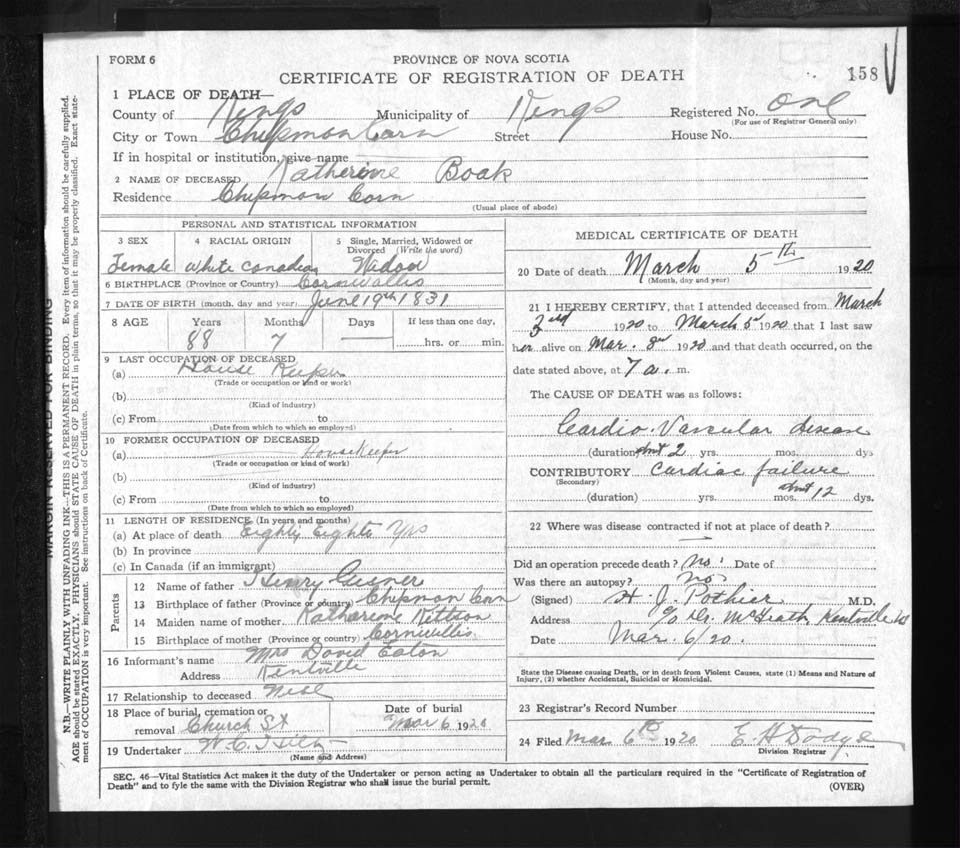 FORM 6
PROVINCE OF NOVA SCOTIA
CERTIFICATE OF REGISTRATION OF DEATH
158
1 PLACE OF DEATH—
County of Kings Municipality of Kings Registered No. one
(For use of Registrar General only)
City or Town Chipmon Corn Street House No.
If in hospital or institution, give name
2 NAME OF DECEASED Katherine Boak
Residence Chipmon Corn
(Usual place of abode)
PERSONAL AND STATISTICAL INFORMATION
3 SEX 4 RACIAL ORIGIN 5 Single, Married, Widowed or
Divorced (Write the word)
Female white Canadian Widow
6 BIRTHPLACE (Province or Country) Cornwallis
7 DATE OF BIRTH (month, day and year) June 19th 1831
8 AGE Years Months Days If less than one day,
88 7 hrs. or min.
9 LAST OCCUPATION OF DECEASED
(a) House Keeper
(Trade or occupation or kind or work)
(b)
(Kind of industry)
(c) From to
(Date from which to which so employed)
10 FORMER OCCUPATION OF DECEASED
(a) HouseKeeper
(Trade or occupation or kind of work)
(b)
(Kind of industry)
(c) From to
(Date from which to which so employed)
11 LENGTH OF RESIDENCE (In years and months)
(a) At place of death Eighty Eighto Yrs
(b) In province
(c) In Canada (if an immigrant)
Parents
12 Name of father Henry
13 Birthplace of father (Province or country) Chipmon Corn
14 Maiden name of mother Katharine
15 Birthplace of mother (Province or country) Cornwallis
16 Informant's name Mrs David Eaton
Address Kentville
17 Relationship to deceased
18 Place of burial, cremation or Date of burial
removal Church St Mar 6 1920
19 Undertaker W. C.
(Name and Address)
MEDICAL CERTIFICATE OF DEATH
20 Date of death March 5TH 1920
(Month, day and year)
21 I HEREBY CERTIFY, that I attended deceased from March
1920 to March 5 1920 that I last saw
her alive on Mar. 1920 and that death occurred, on the
date stated above, at 7 a. m.
The CAUSE OF DEATH was as follows:
Cardio-Vascular disease
(duration) abut 2 yrs. mos. dys
CONTRIBUTORY cardiac failure
(Secondary)
(duration) yrs. mos. abut 12 dys.
22 Where was disease contracted if not at place of death?
Did an operation precede death? no. Date of
Was there an autopsy? no
(Signed) H. J. Pothier M.D.
Address c/o Dr. McGrath, Kentville
Date Mar. 6/20.
State the Disease causing Death, or in death from Violent Causes, state (1) Means and Nature of
Injury, (2) whether Accidental, Suicidal or Homicidal.
23 Registrar's Record Number
24 Filed Mar 6th 1920 E. H Dodge
Division Registrar
SEC. 46—Vital Statistics Act makes it the duty of the Undertaker or person acting as Undertaker to obtain all the particulars required in the "Certificate of Registration of
Death" and to fyle the same with the Division Registrar who shall issue the burial permit.
(OVER)
MARGIN RESERVED FOR BINDING
N.B.—WRITE PLAINLY WITH UNFADING INK—THIS IS A PERMANENT RECORD. Every item of information should be carefully supplied.
AGE should be stated EXACTLY. PHYSICIANS should STATE CAUSE OF DEATH in plain terms, so that it may be properly classified. Exact state-
ment of OCCUPATION is very important. See instructions on back of Certificate.